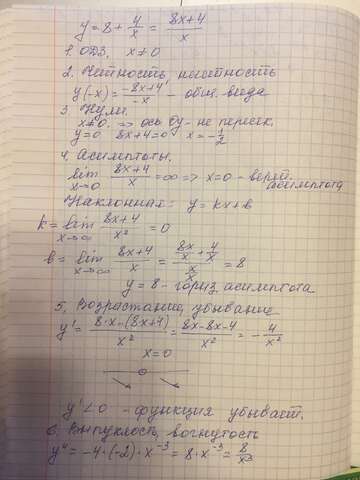 y = 8 + 4/x = (8x+4)/x
1. ОДЗ. x ≠ 0
2. Четность, нечетность
y(-x) = (-8x+4)/-x - общ. вида
3. Нули.
x≠0. => ось Oy - не перес.
y=0 8x+4=0 x = -1/2
4. Асимптоты.
lim x→0 (8x+4)/x = ∞ => x=0 - верт. асимптота
Наклонная: y = kx+b
k = lim x→∞ (8x+4)/x² = 0
b = lim x→∞ (8x+4)/x = (8x/x + 4/x)/(x/x) = 8
y = 8 - гориз. асимптота
5. Возрастание, убывание
y' = (8·x-(8x+4))/x² = (8x-8x-4)/x² = -4/x²
x=0
y' < 0 - функция убывает.
6. Выпуклость, вогнутость
y'' = -4·(-2)·x⁻³ = 8·x⁻³ = 8/x³